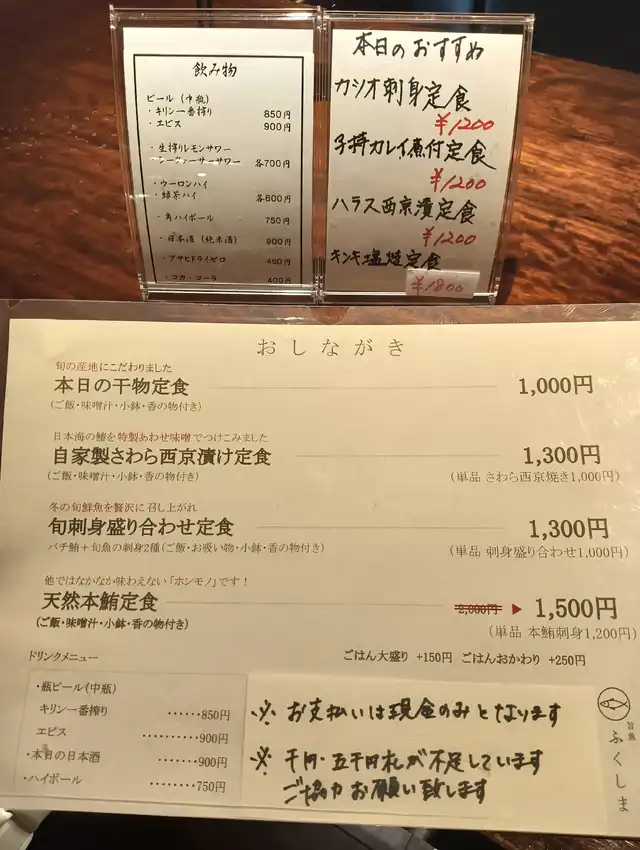 飲み物
ビール(中瓶)
・キリン一番搾り 850円
・エビス 900円
・生搾りレモンサワー
シークヮーサーサワー 各700円
・ウーロンハイ
・緑茶ハイ 各600円
・角ハイボール 750円
・日本酒(純米酒) 900円
・アサヒドライゼロ 450円
・コカ・コーラ 400円
本日のおすすめ
カツオ刺身定食
¥1200
子持カレイ煮付定食
¥1200
ハラス西京漬定食
¥1200
キンキ塩焼定食
¥1800
おしながき
旬の産地にこだわりました
本日の干物定食 1,000円
(ご飯・味噌汁・小鉢・香の物付き)
日本海の鰆を特製あわせ味噌でつけこみました
自家製さわら西京漬け定食 1,300円
(ご飯・味噌汁・小鉢・香の物付き) (単品 さわら西京焼き1,000円)
冬の旬鮮魚を贅沢に召し上がれ
旬刺身盛り合わせ定食 1,300円
バチ鮪+旬魚の刺身2種(ご飯・お吸い物・小鉢・香の物付き) (単品 刺身盛り合わせ1,000円)
他ではなかなか味わえない「ホンモノ」です!
天然本鮪定食 2,000円 ▶ 1,500円
(ご飯・味噌汁・小鉢・香の物付き) (単品 本鮪刺身1,200円)
ごはん大盛り +150円 ごはんおかわり +250円
ドリンクメニュー
・瓶ビール(中瓶)
キリン一番搾り ……850円
エビス ………900円
・本日の日本酒 ……900円
・ハイボール ……750円
※ お支払いは現金のみとなります
※ 千円・五千円札が不足しています
ご協力お願い致します
旨魚
ふくしま